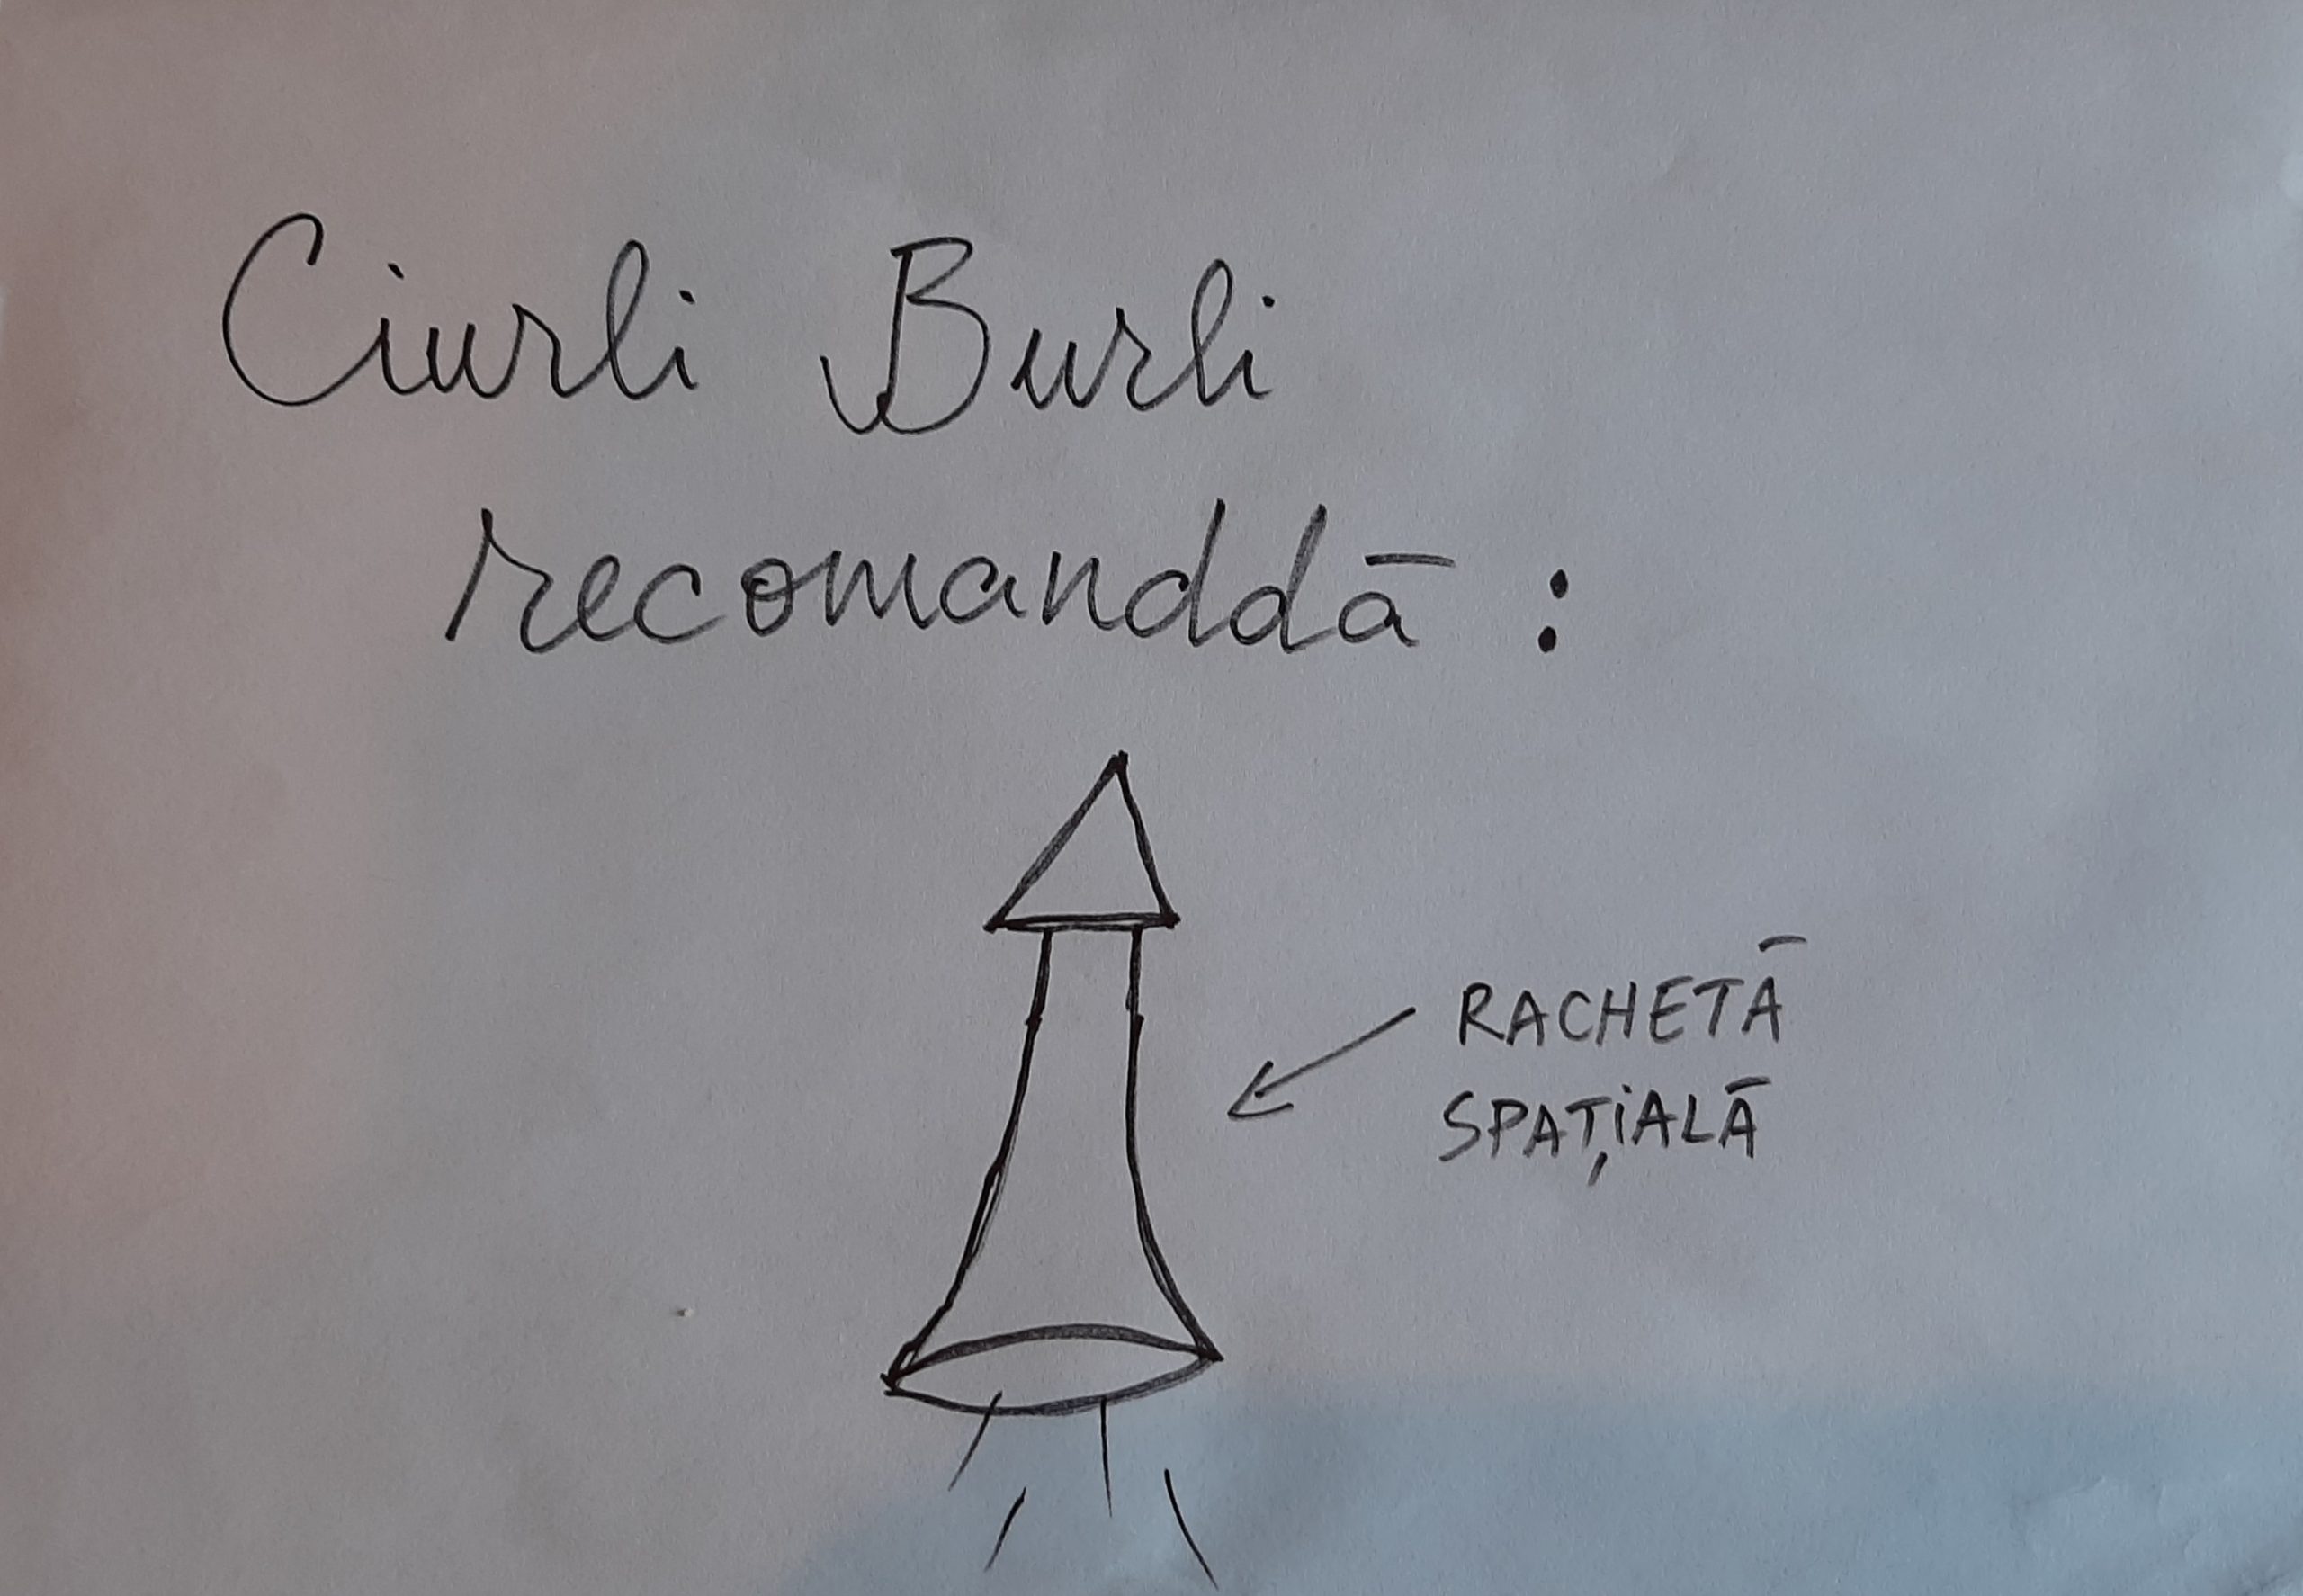 Ciurli Burli
recomanddā :
RACHETĀ
SPAȚiALĀ